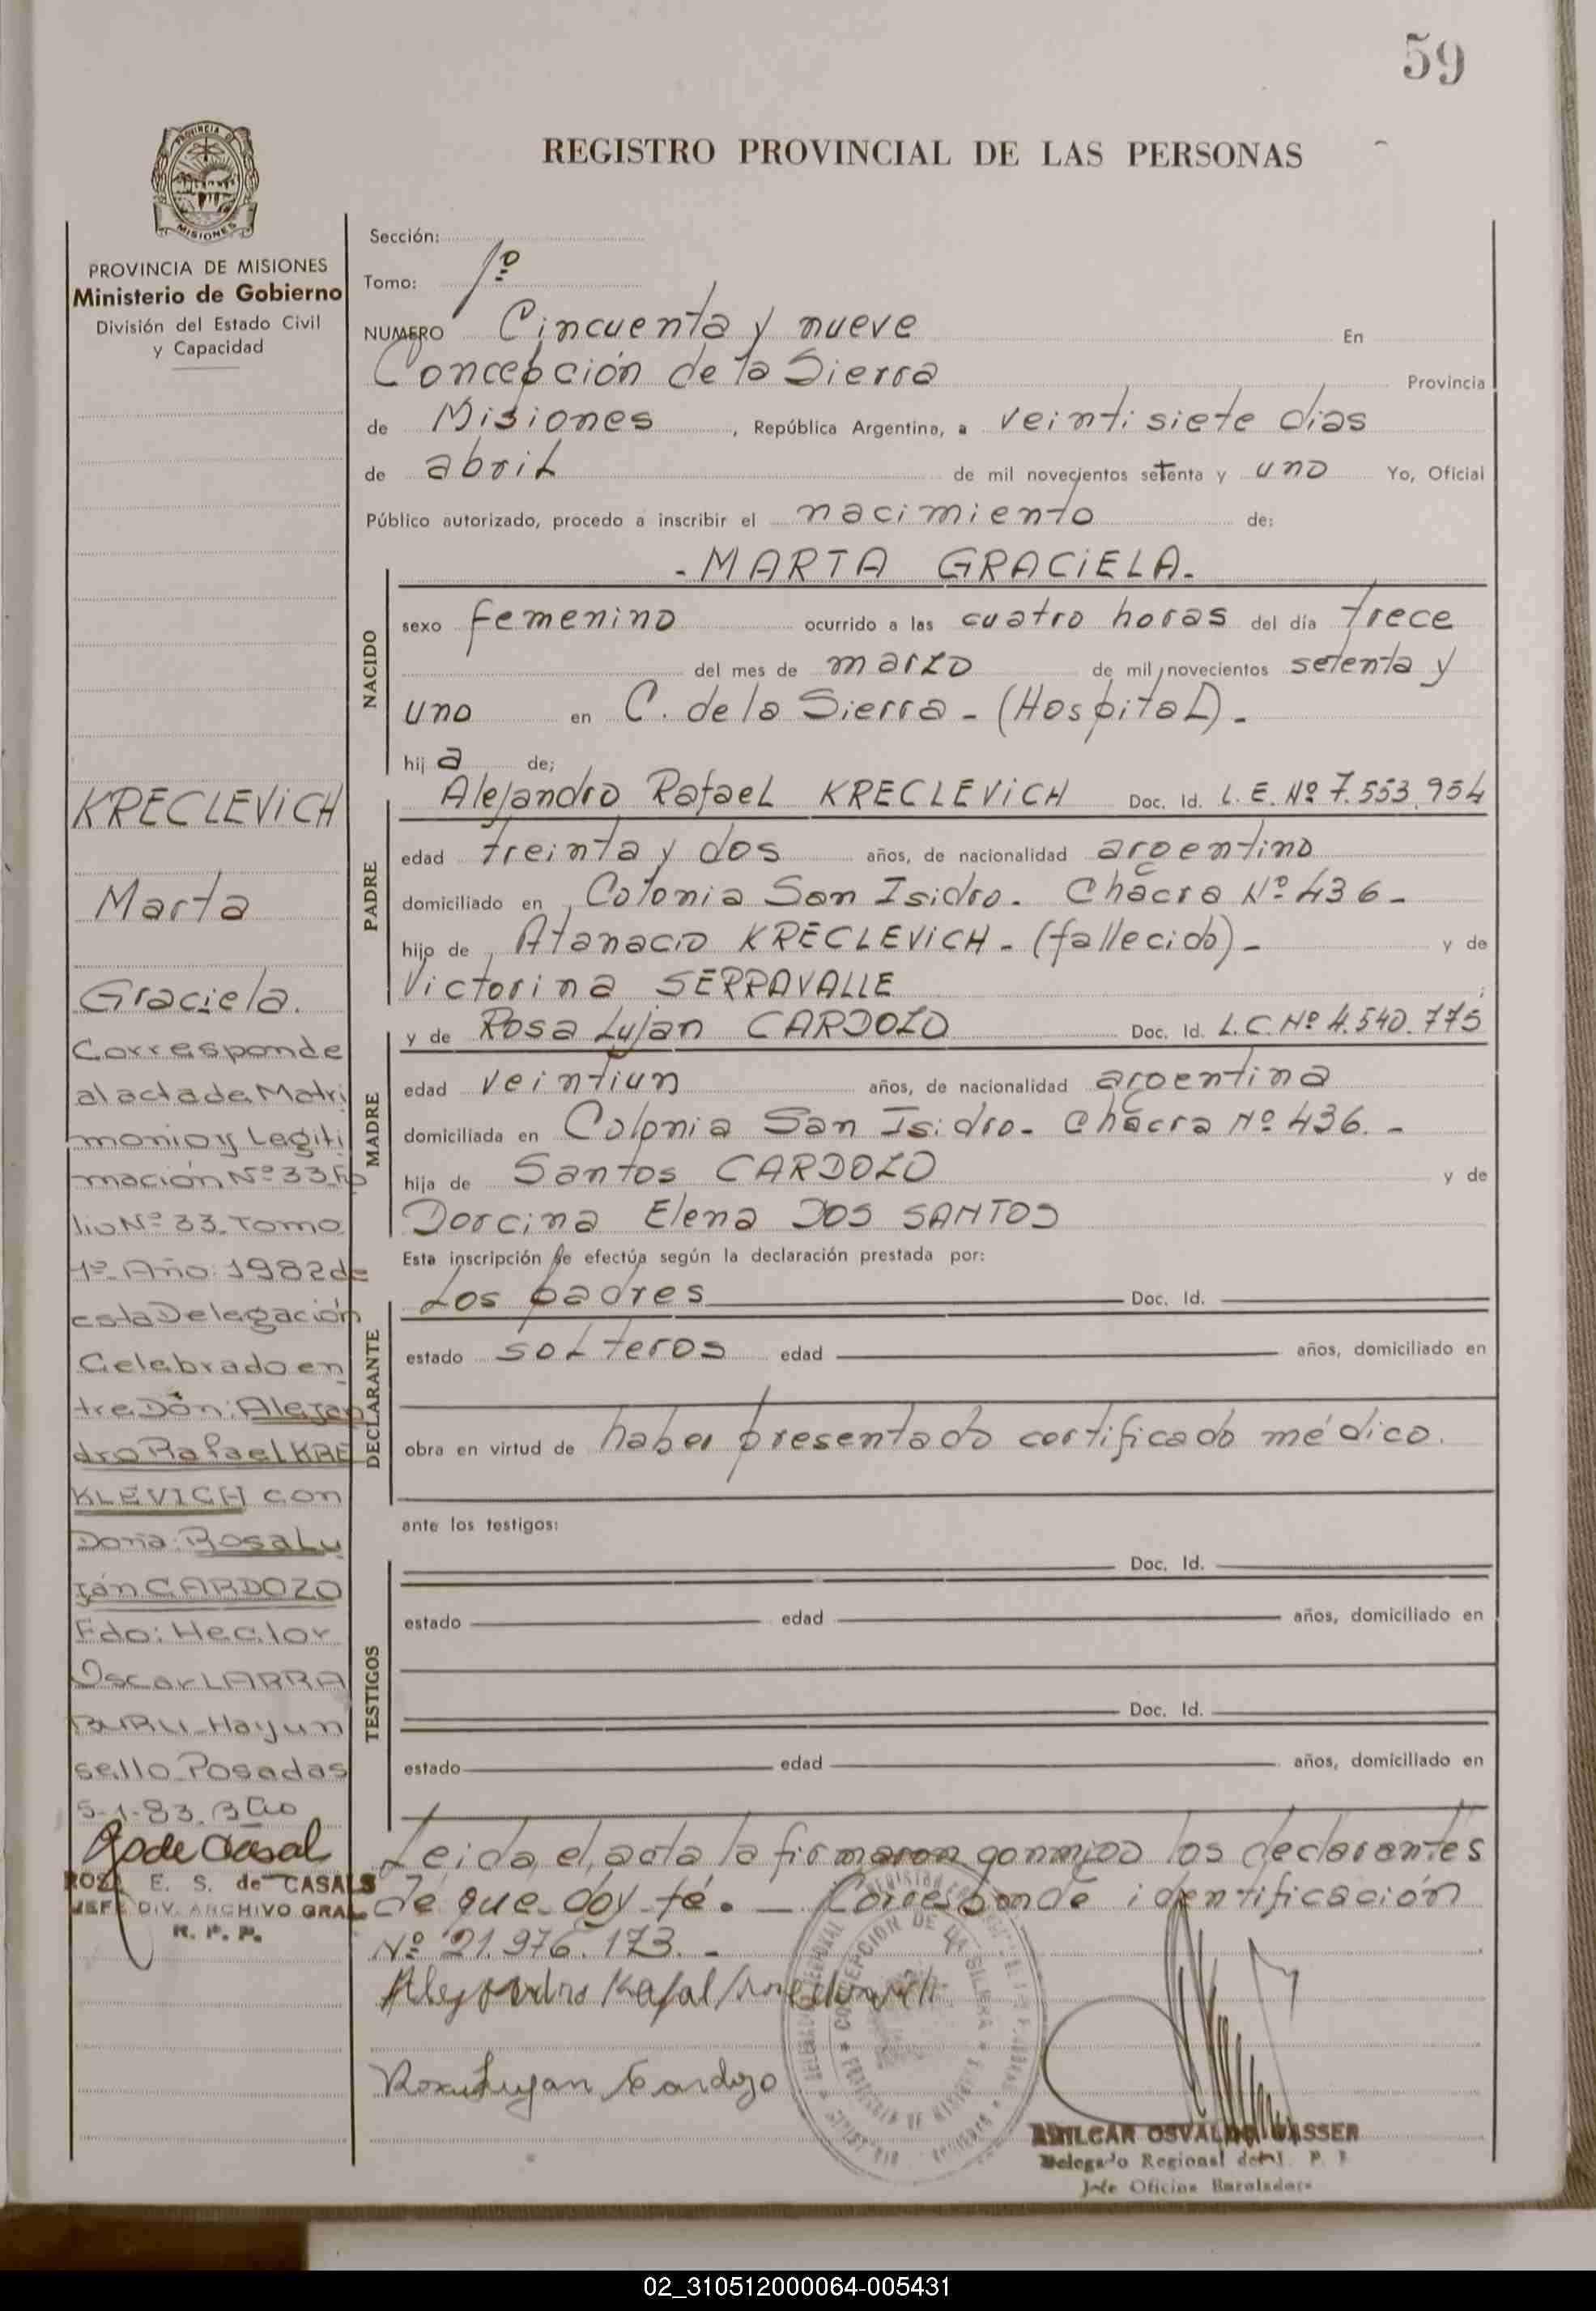 59
REGISTRO PROVINCIAL DE LAS PERSONAS
PROVINCIA DE
MISIONES
PROVINCIA DE MISIONES
Ministerio de Gobierno
División del Estado Civil
y Capacidad
KRECLEVICH
Marta
Graciela.
Corresponde
al acta de Matri
monio y Legiti
mación Nº 33 Fo
lio Nº 33 Tomo
1º Año: 1982 de
esta Delegación
Celebrado en
tre Dón: Alejan
dro Rafael KRE
KLEVICH con
Doña: Rosa Lu
ján CARDOZO
Fdo: Hector
Oscar LARRA
BURU Hay un
sello Posadas
5-1-83.
ROSA E. S. de CASALS
JEFE DIV. ARCHIVO GRAL.
R. P. P.
Sección:
Tomo: 1º
NUMERO Cincuenta y nueve En
Concepción de la Sierra Provincia
de Misiones, República Argentina, a veintisiete dias
de abril de mil novecientos setenta y uno Yo, Oficial
Público autorizado, procedo a inscribir el nacimiento de:
- MARTA GRACIELA.
NACIDO
sexo femenino ocurrido a las cuatro horas del día trece
del mes de marzo de mil novecientos setenta y
uno en C. de la Sierra - (Hospital) -
hij a de;
PADRE
Alejandro Rafael KRECLEVICH Doc. Id. L. E. Nº 7.553.954
edad treinta y dos años, de nacionalidad argentino
domiciliado en Colonia San Isidro. Chacra Nº 436 -
hijo de Atanacio KRECLEVICH - (fallecido) - y de
Victorina SERRAVALLE ;
MADRE
y de Rosa Lujan CARDOZO Doc. Id. L.C. Nº 4.540.775
edad veintiun años, de nacionalidad argentina
domiciliada en Colonia San Isidro - Chacra Nº 436. -
hija de Santos CARDOZO y de
Dorcina Elena DOS SANTOS
Esta inscripción se efectúa según la declaración prestada por:
DECLARANTE
Los padres Doc. Id.
estado solteros edad años, domiciliado en
obra en virtud de haber presentado certificado médico.
ante los testigos:
TESTIGOS
Doc. Id.
estado edad años, domiciliado en
Doc. Id.
estado edad años, domiciliado en
Leida el acta la firmaron conmigo los declarantes
de que doy fé. - Corresponde identificación
Nº 21.976.173. -
Rosa Lujan Cardozo
CONCEPCION DE LA SIERRA
AMILCAR OSVALDO GASSER
Delegado Regional del
Jefe Oficina
02_310512000064-005431